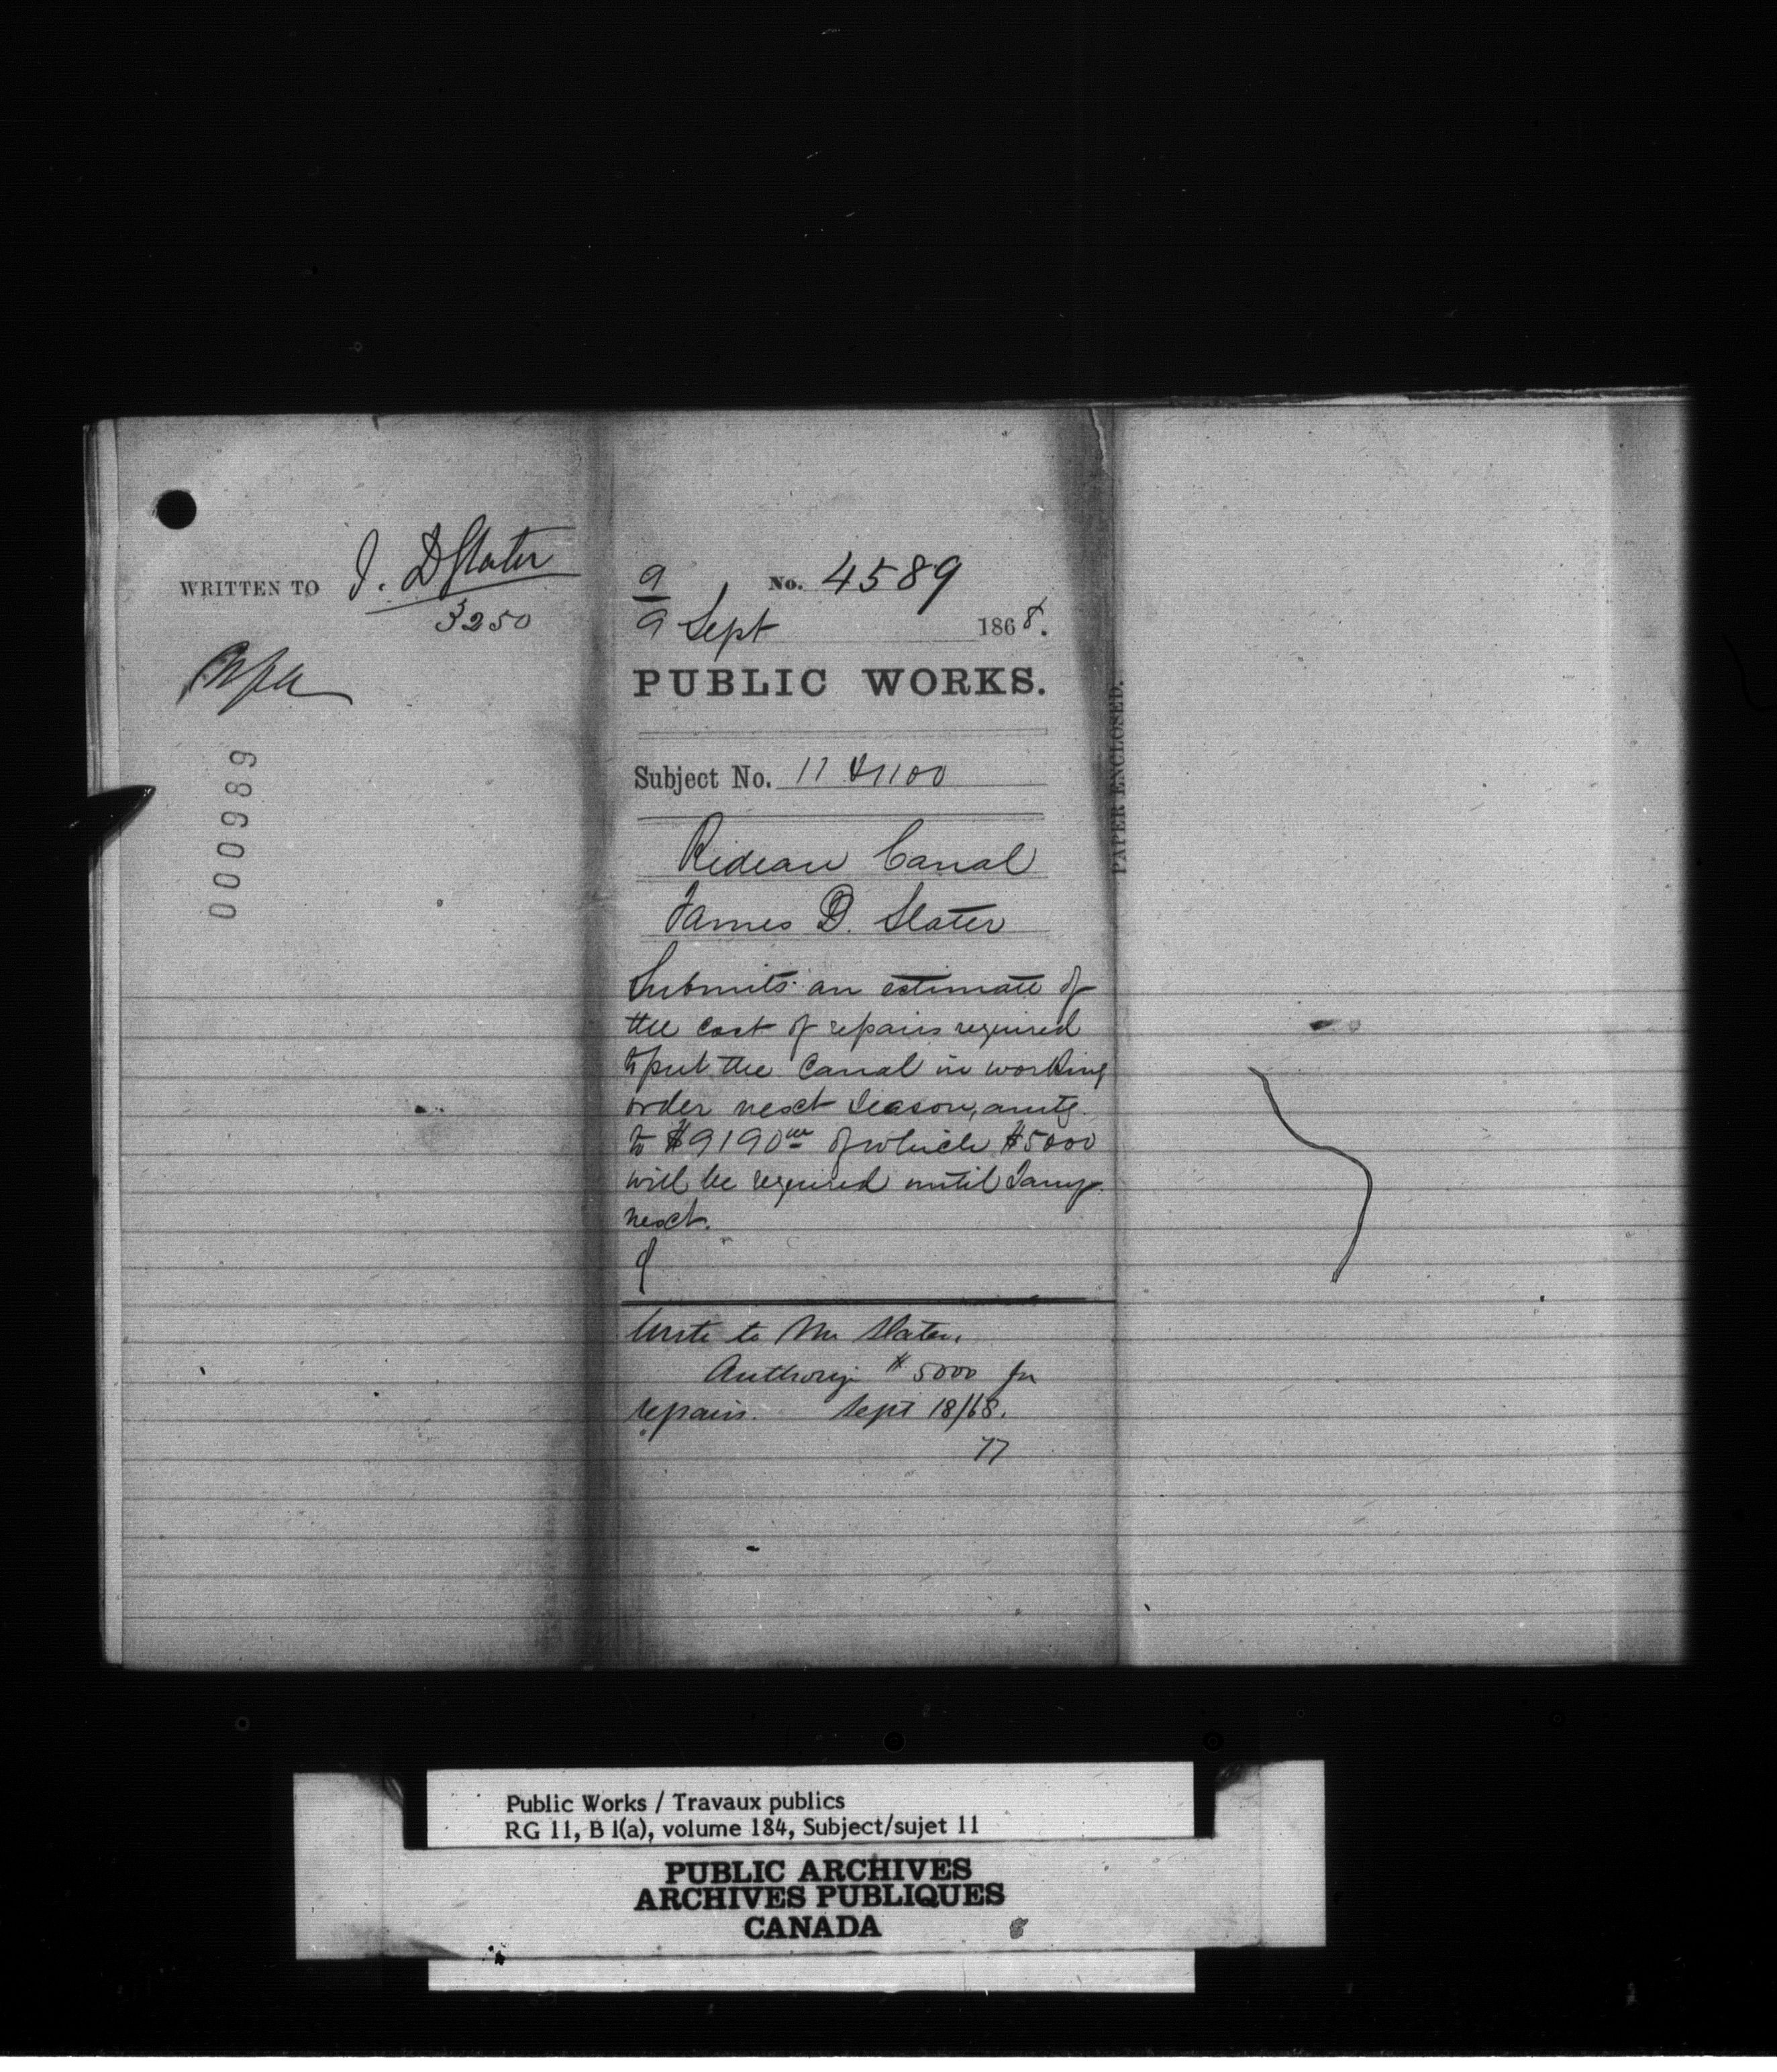 WRITTEN TO J. D Slater
3250
000989
9
9 Sept
No. 4589
1868.
PUBLIC WORKS.
Subject No. 11 & 1100
Rideau Canal
James D. Slater
Submits an estimate of
the cost of repairs required
to put the Canal in working
order next season, amtg.
to $9190 00 of which $5000
will be required until Jany.
next.
Write to Mr Slater.
Authorize $5000 for
repairs. Sept 18/68.
PAPER ENCLOSED.
Public Works / Travaux publics
RG 11, B 1(a), volume 184, Subject/sujet 11
PUBLIC ARCHIVES
ARCHIVES PUBLIQUES
CANADA